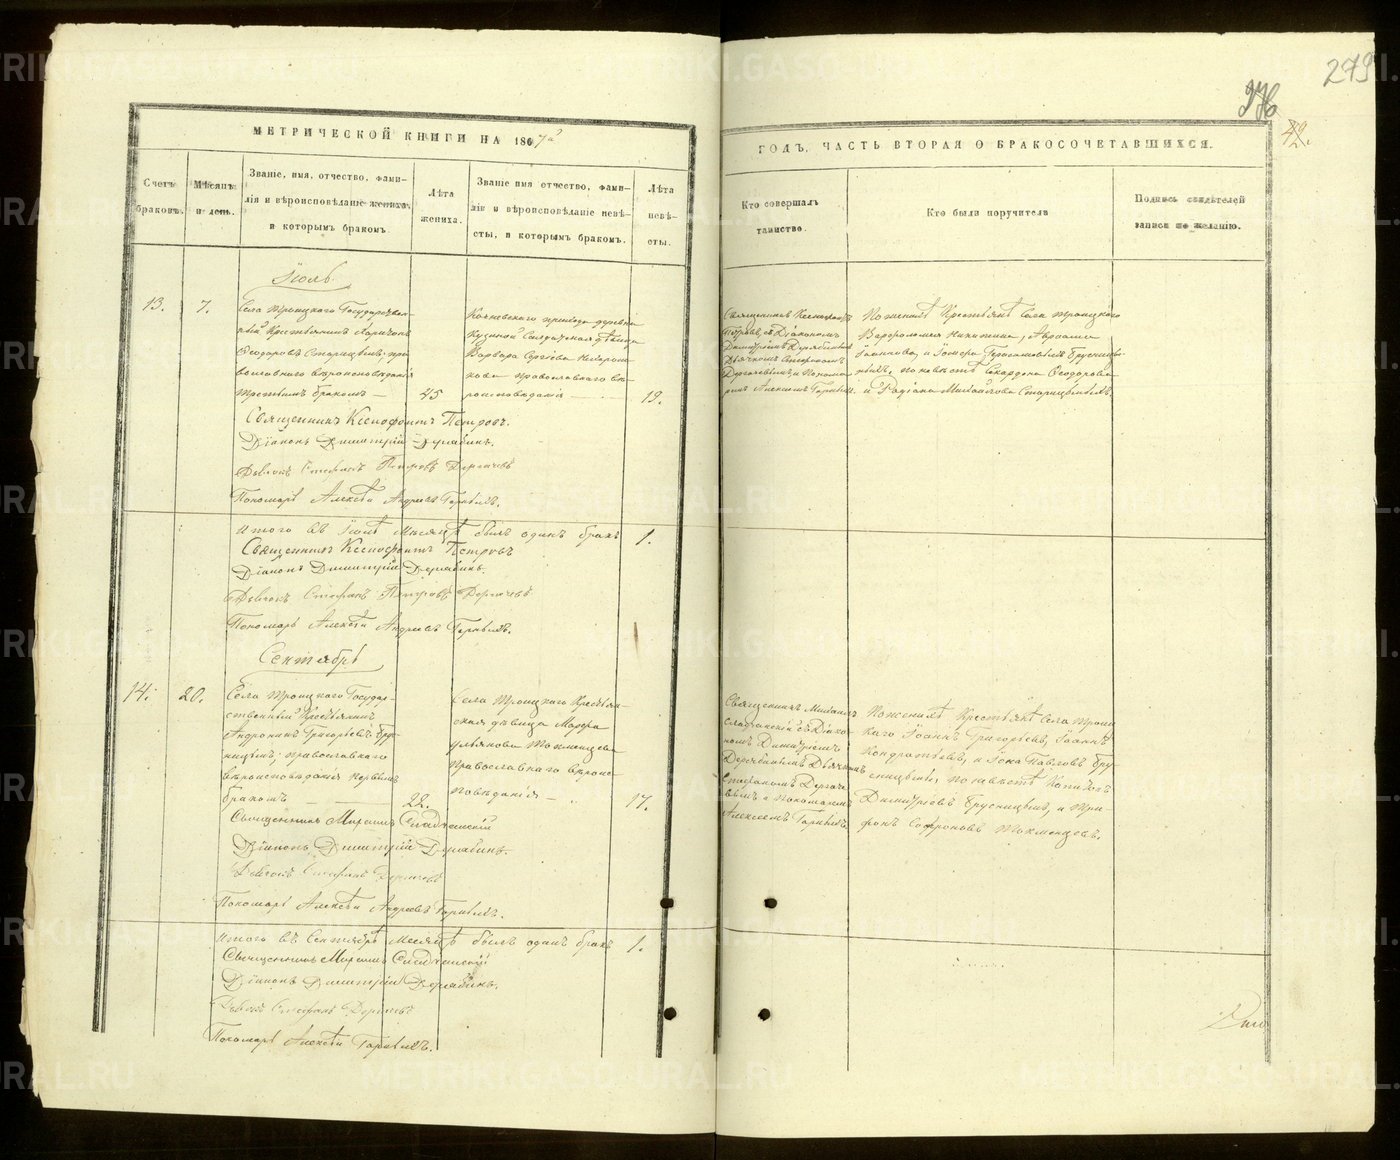 279
42.
МЕТРИЧЕСКОЙ КНИГИ НА 1867й
ГОДЪ, ЧАСТЬ ВТОРАЯ О БРАКОСОЧЕТАВШИХСЯ.
Счетъ браковъ.
Мѣсяцъ и день.
Званіе, имя, отчество, фами-
лія и вѣроисповѣданіе жениха,
и которымъ бракомъ.
Лѣта жениха.
Званіе имя отчество, фами-
лія и вѣроисповѣданіе невѣ-
сты, и которымъ бракомъ.
Лѣта невѣ-
сты.
Кто совершалъ таинство.
Кто были поручители
Подпись свидѣтелей записи по желанію.
Іюль.
13. 7.
Села Троицкаго Государствен-
ный Крестьянинъ Харитонъ
Ѳеодоровъ Старицынъ, пра-
вославнаго вѣроисповѣданія
третьимъ бракомъ — 45
прихода деревни
дѣвица
Варвара Сергіева
православнаго вѣ-
роисповѣданія — 19.
Священникъ Ксенофонтъ
Петровъ, съ Діакономъ
Димитріемъ Дерябинымъ
Дьячкомъ Стефаномъ
Дергачевымъ и Понома-
ремъ Алексѣемъ
По женихѣ Крестьяне Села Троицкаго
Никитинъ,
Іоанновъ, и Герасимовъ Брусницы-
ны, по невѣстѣ Ѳеодоровъ
и Михайловъ Старицыны.
Священникъ Ксенофонтъ Петровъ.
Діаконъ Димитрій Дерябинъ.
Дьячокъ Стефанъ Петровъ Дергачевъ
Пономарь Алексѣй Андреевъ
Итого въ Іюлѣ Месяцѣ былъ одинъ бракъ 1.
Священникъ Ксенофонтъ Петровъ
Діаконъ Димитрій Дерябинъ.
Дьячокъ Стефанъ Петровъ Дергачевъ
Пономарь Алексѣй Андреевъ
Сентябрь
14. 20.
Села Троицкаго Государ-
ственный Крестьянинъ
Андроникъ Григорьевъ Брус-
ницынъ, православнаго
вѣроисповѣданія первымъ
бракомъ 22.
Села Троицкаго Крестьян-
ская дѣвица Марфа
Ульянова Токманцева
православнаго вѣроис-
повѣданія — 17.
Священникъ Михаилъ
съ Діако-
номъ Димитріемъ
Дерябинымъ Дьячкомъ
Стефаномъ Дергаче-
вымъ и Пономаремъ
Алексѣемъ
По женихѣ Крестьяне Села Троиц-
каго Іоаннъ Григорьевъ, Іоаннъ
Кондратьевъ, и Іона Павловъ Бру-
сницыны, по невѣстѣ Капитонъ
Димитріевъ Брусницынъ, и Три-
фонъ Софроновъ Токманцевъ.
Священникъ
Діаконъ Димитрій Дерябинъ.
Дьячокъ Стефанъ Дергачевъ
Пономарь Алексѣй Андреевъ
Итого въ Сентябрѣ Месяцѣ былъ одинъ бракъ 1.
Священникъ
Діаконъ Димитрій Дерябинъ.
Дьячокъ Стефанъ Дергачевъ
Пономарь Алексѣй
METRIKI.GASO-URAL.RU